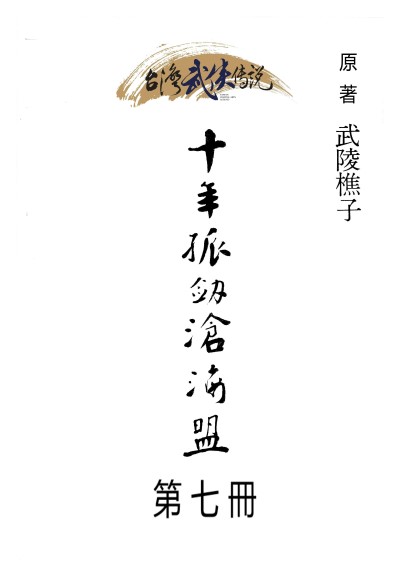 台灣武俠传说
原著 武陵樵子
十年孤劔滄海盟
第七冊